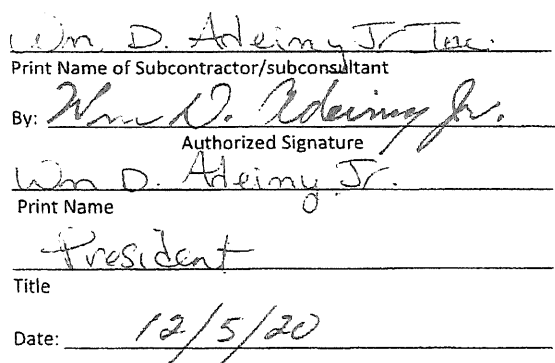 Wm D. Adeimy Jr Inc.
Print Name of Subcontractor/subconsultant
By: Wm D. Adeimy Jr.
Authorized Signature
Wm D. Adeimy Jr.
Print Name
President
Title
Date: 12/5/20